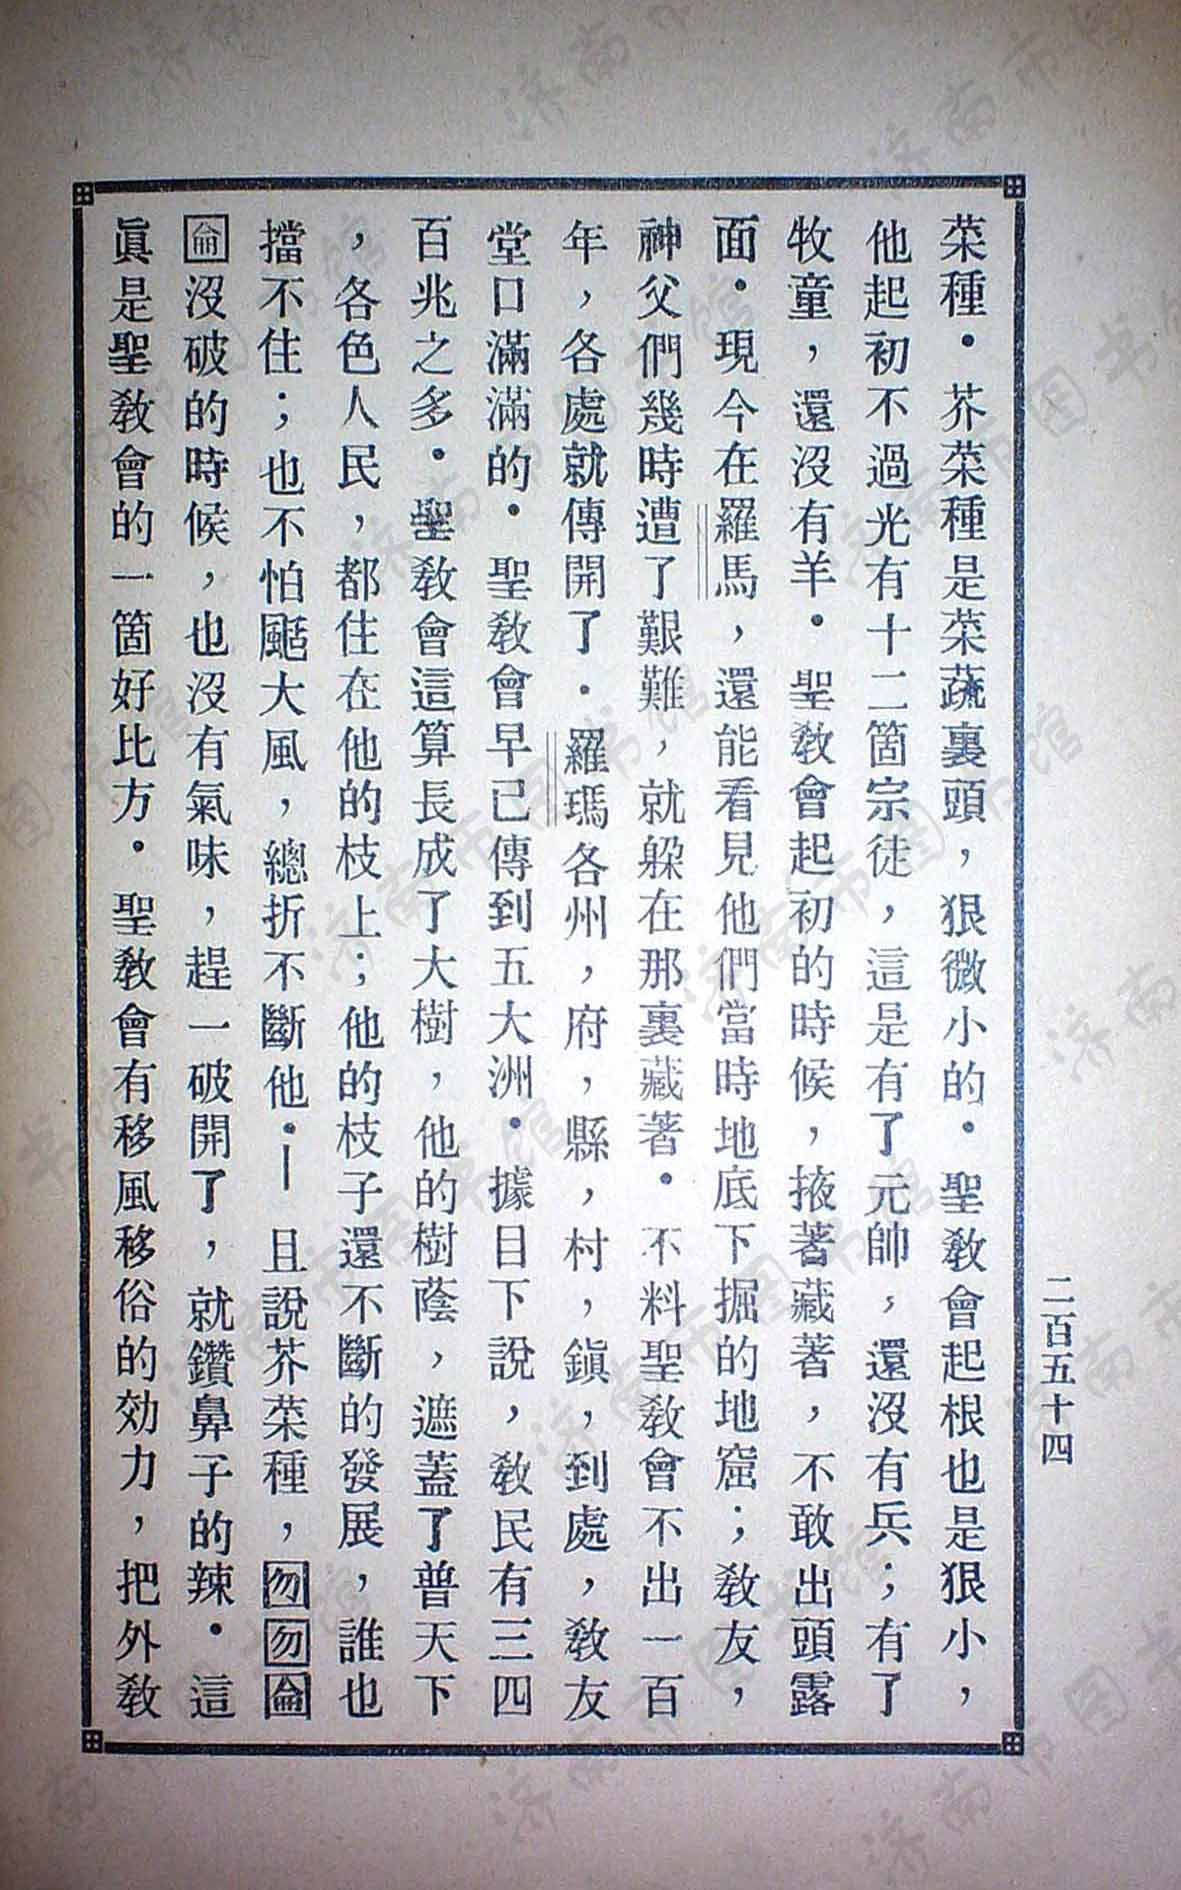 二百五十四
菜種．芥菜種是菜蔬裏頭，狠微小的．聖教會起根也是狠小，
他起初不過光有十二箇宗徒，這是有了元帥，還沒有兵；有了
牧童，還沒有羊．聖教會起初的時候，掖著藏著，不敢出頭露
面．現今在羅馬，還能看見他們當時地底下掘的地窟；教友，
神父們幾時遭了艱難，就躲在那裏藏著．不料聖教會不出一百
年，各處就傳開了．羅瑪各州，府，縣，村，鎭，到處，教友
堂口滿滿的．聖教會早已傳到五大洲．據目下說，教民有三四
百兆之多．聖教會這算長成了大樹，他的樹蔭，遮蓋了普天下
，各色人民，都住在他的枝上；他的枝子還不斷的發展，誰也
擋不住；也不怕颳大風，總折不斷他．—且說芥菜種，囫囫圇
圇沒破的時候，也沒有氣味，趕一破開了，就鑽鼻子的辣．這
眞是聖教會的一箇好比方．聖教會有移風移俗的効力，把外教
济南市图书馆